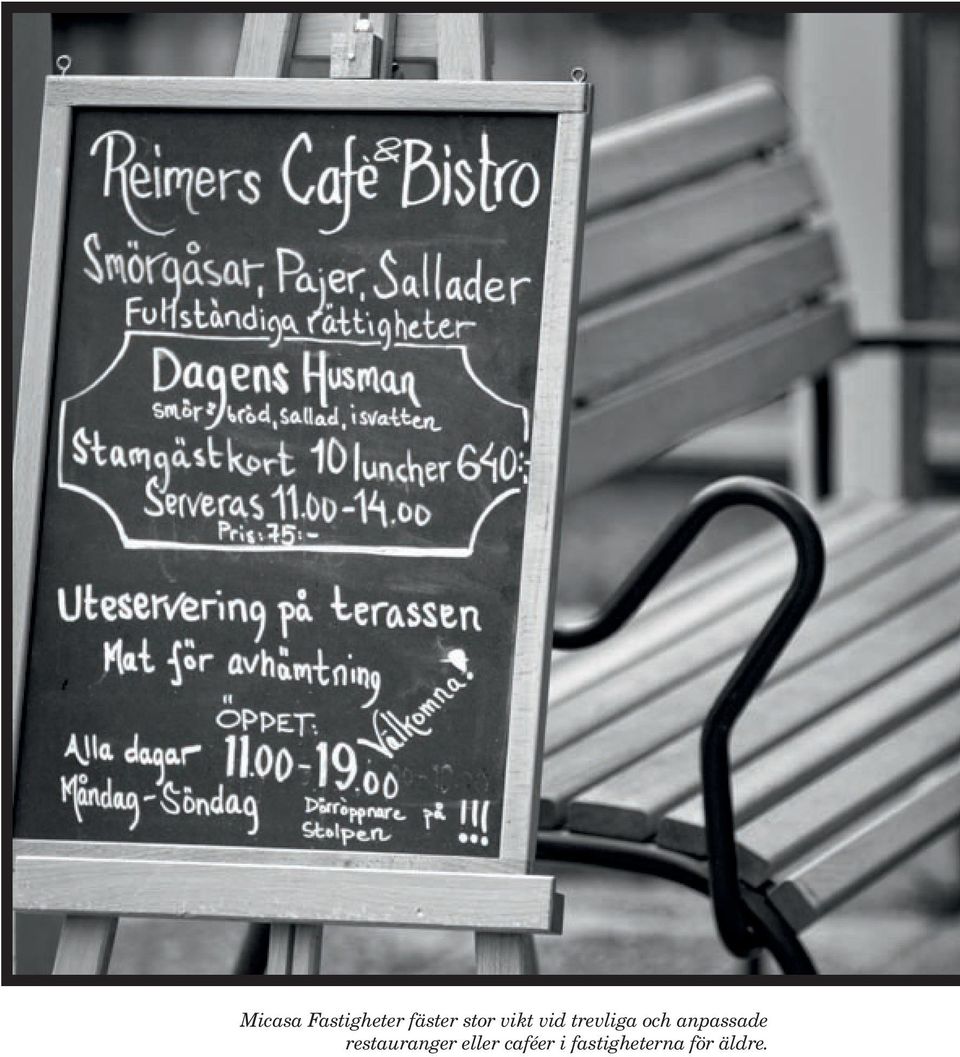 Reimers Cafè & Bistro
Smörgåsar, Pajer, Sallader
Fullständiga rättigheter
Dagens Husman
smör & bröd, sallad, isvatten
Stamgästkort 10 luncher 640:-
Serveras 11.00-14.00
Pris: 75:-
Uteservering på terassen
Mat för avhämtning
Välkomna!
ÖPPET:
Alla dagar 11.00-19.00
Måndag-Söndag
Dörröppnare på !!!
Stolpen
Micasa Fastigheter fäster stor vikt vid trevliga och anpassade
restauranger eller caféer i fastigheterna för äldre.